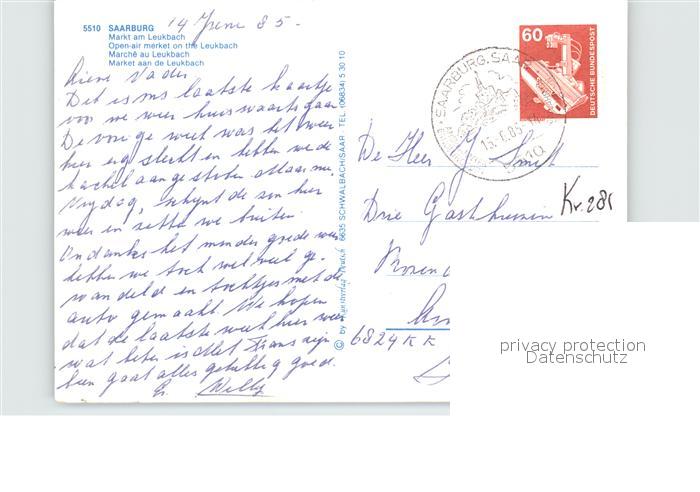 5510 SAARBURG
14 Juni 85-
Markt am Leukbach
Open-air merket on the Leukbach
Marché au Leukbach
Market aan de Leukbach
Lieve Vader
Dit is ons laatste kaartje
voor we weer huiswaarts gaan
De vorige week was het weer
hier erg slecht en hebben we de
kachel aangestoken Maar nu,
Vrijdag, schijnt de zon hier
weer en zitten we buiten
Ondanks het minder goede weer
hebben we toch wel veel ge-
wandeld en tochtjes met de
auto gemaakt. We hopen
dat de laatste week hier weer
wat beter is Met Frans zijn
been gaat alles gelukkig goed.
Gr. Willy
© by 6635 SCHWALBACH/SAAR TEL. (06834) 5 30 10
60
DEUTSCHE BUNDESPOST
SAARBURG, SAAR
15.-6.85
De Heer J Smit
Drie Gasthuizen
Kr. 281
6824 KK
privacy protection
Datenschutz